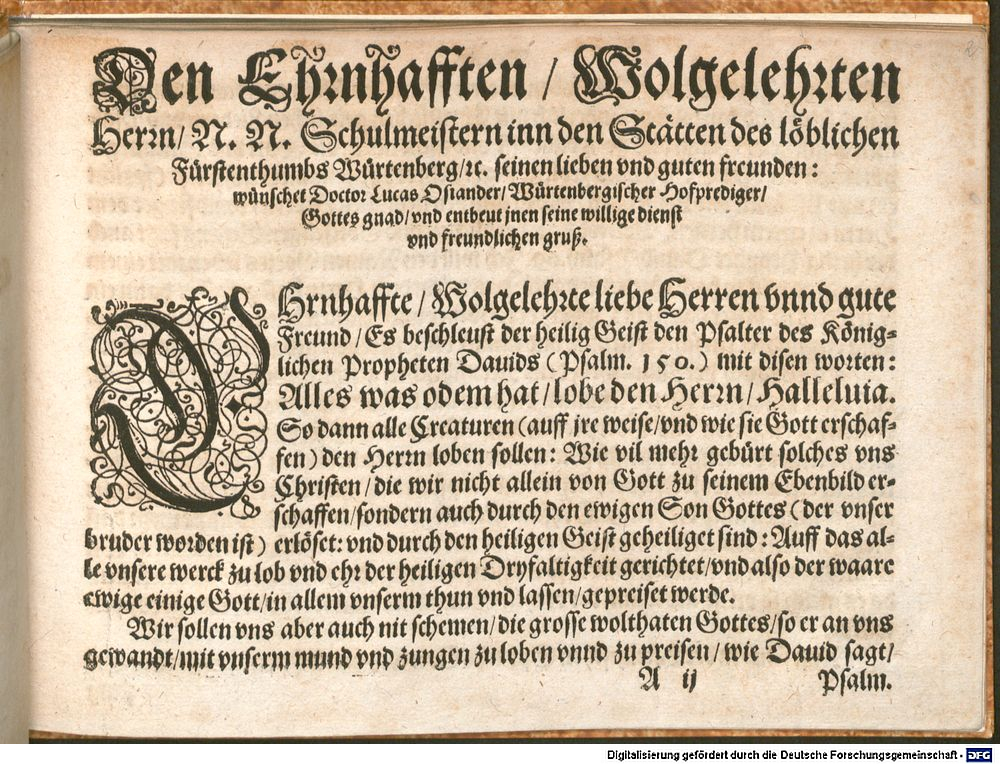 2
Den Ehrnhafften / Wolgelehrten
Herrn / N. N. Schulmeistern inn den Stätten des löblichen
Fürstenthumbs Würtenberg / ꝛc. seinen lieben vnd guten freunden:
wünschet Doctor Lucas Osiander / Würtenbergischer Hofprediger /
Gottes gnad / vnd entbeut jnen seine willige dienst
vnd freundlichen gruß.
EHrnhaffte / Wolgelehrte liebe Herren vnnd gute
Freund / Es beschleust der heilig Geist den Psalter des König-
lichen Propheten Dauids (Psalm. 150.) mit disen worten:
Alles was odem hat / lobe den Herrn / Halleluia.
So dann alle Creaturen (auff jre weise / vnd wie sie Gott erschaf-
fen) den Herrn loben sollen: Wie vil mehr gebürt solches vns
Christen / die wir nicht allein von Gott zu seinem Ebenbild er-
schaffen / sondern auch durch den ewigen Son Gottes (der vnser
bruder worden ist) erlöset: vnd durch den heiligen Geist geheiliget sind: Auff das al-
le vnsere werck zu lob vnd ehr der heiligen Dryfaltigkeit gerichtet / vnd also der waare
ewige einige Gott / in allem vnserm thun vnd lassen / gepreiset werde.
Wir sollen vns aber auch nit schemen / die grosse wolthaten Gottes / so er an vns
gewandt / mit vnserm mund vnd zungen zu loben vnnd zu preisen / wie Dauid sagt /
A ij Psalm.
Digitalisierung gefördert durch die Deutsche Forschungsgemeinschaft - DFG